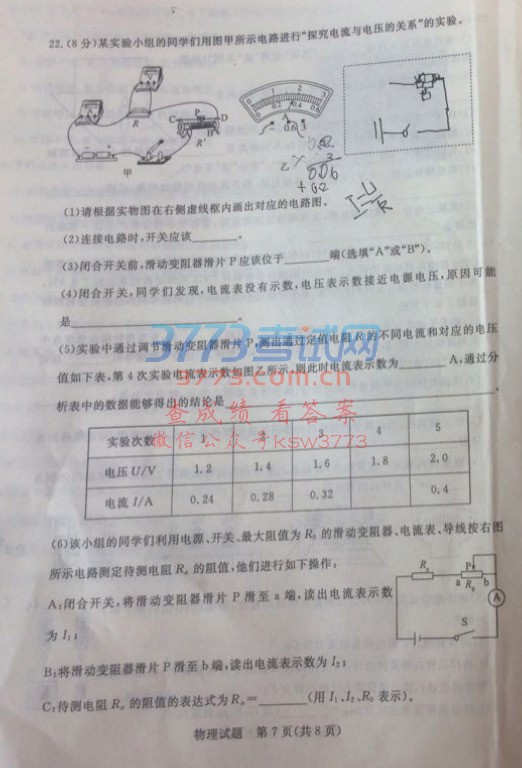 22.(8分)某实验小组的同学们用图甲所示电路进行“探究电流与电压的关系”的实验。
R
C P D
A B
R'
甲
1 2 3
0 0.2 0.4 0.6
A
- 0.6 3
I=U/R
(1)请根据实物图在右侧虚线框内画出对应的电路图。
(2)连接电路时,开关应该______。
(3)闭合开关前,滑动变阻器滑片P应该位于______端(选填“A”或“B”)。
(4)闭合开关,同学们发现,电流表没有示数,电压表示数接近电源电压,原因可能
是______。
(5)实验中通过调节滑动变阻器滑片P,测出通过定值电阻R的不同电流和对应的电压
值如下表,第4次实验电流表示数如图乙所示,则此时电流表示数为______A,通过分
析表中的数据能够得出的结论是______。
3773考试网
3773.com.cn
查成绩 看答案
微信公众号ksw3773
实验次数 1 2 3 4 5
电压U/V 1.2 1.4 1.6 1.8 2.0
电流I/A 0.24 0.28 0.32 0.4
(6)该小组的同学们利用电源、开关、最大阻值为R₀的滑动变阻器、电流表、导线按右图
所示电路测定待测电阻Rₓ的阻值,他们进行如下操作:
A:闭合开关,将滑动变阻器滑片P滑至a端,读出电流表示数
为I₁;
B:将滑动变阻器滑片P滑至b端,读出电流表示数为I₂;
C:待测电阻Rₓ的阻值的表达式为Rₓ=______(用I₁、I₂、R₀表示)。
Rₓ P
a R₀ b
A
S
物理试题 第7页(共8页)